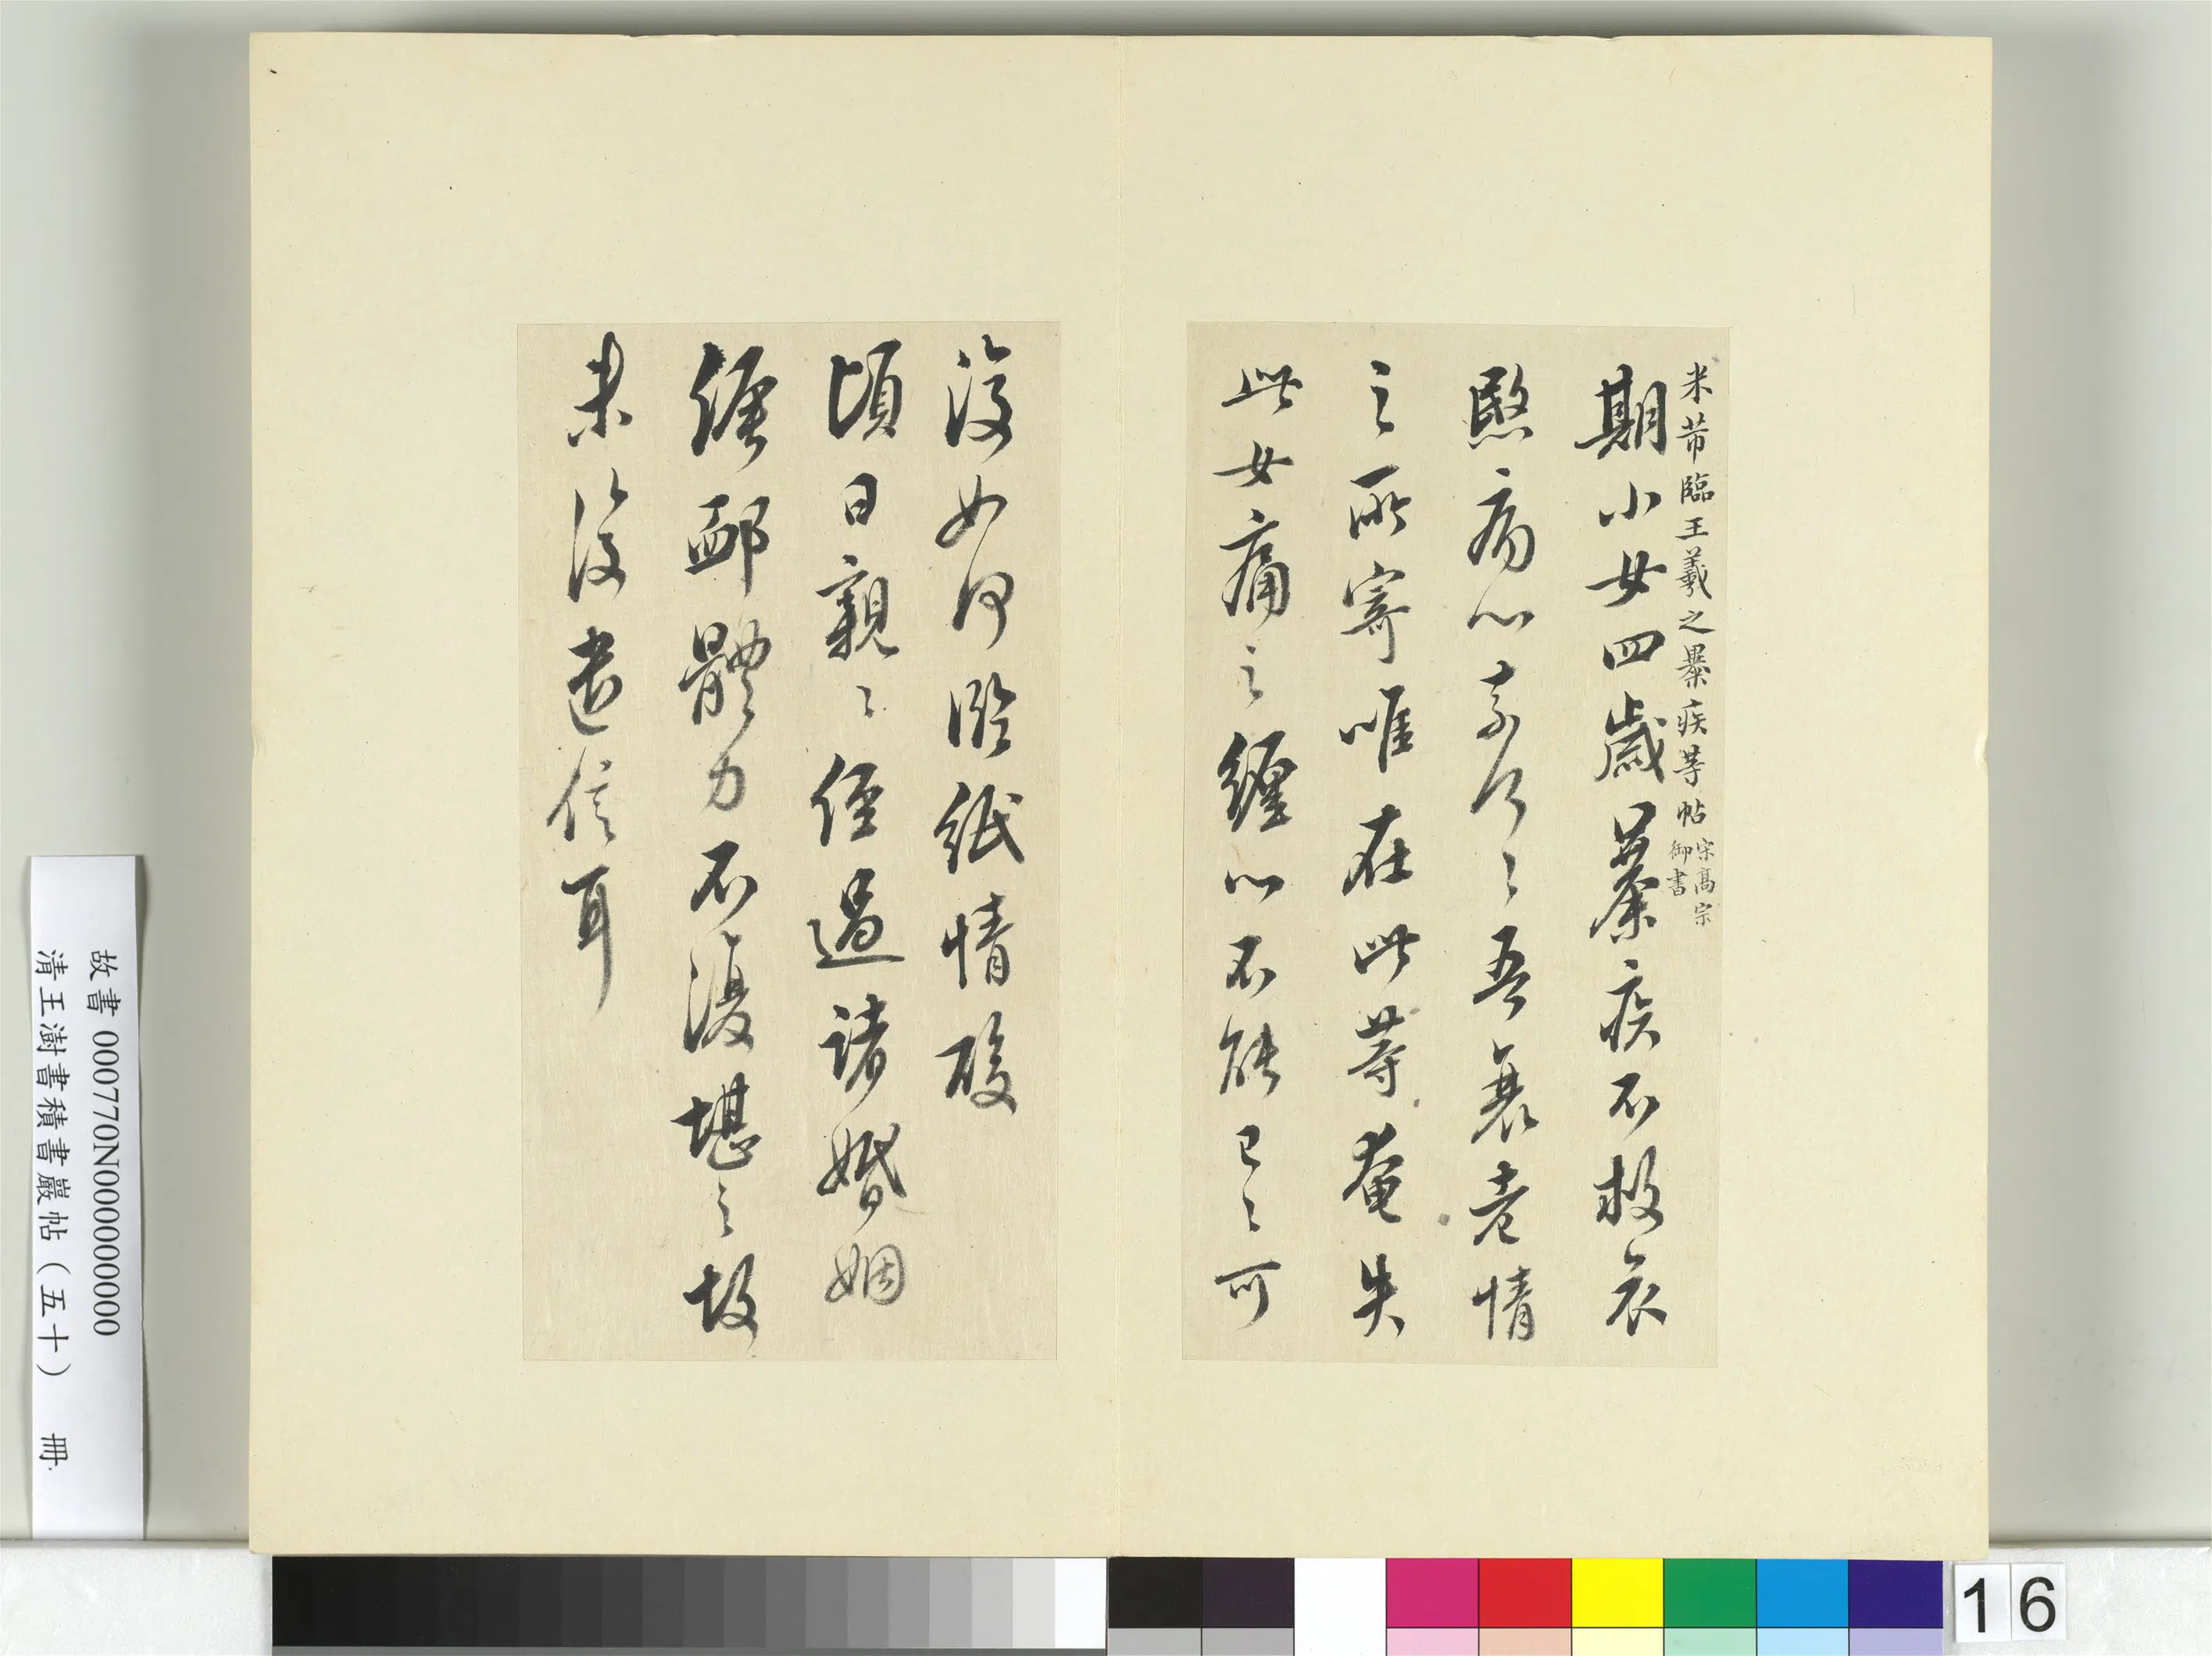 米芾臨王羲之㬥疾等帖
宋高宗
御書
期小女四歲暴疾不救哀
愍痛心奈何〻吾衰老情
之所寄唯在此等奄失
此女痛之纏心不能已〻可
復如何臨紙情酸
頃日親〻經過諸婚姻
鄙體力不復堪之故
未復遣信耳
故書 000770N000000000
清王澍書積書巖帖（五十） 冊
16